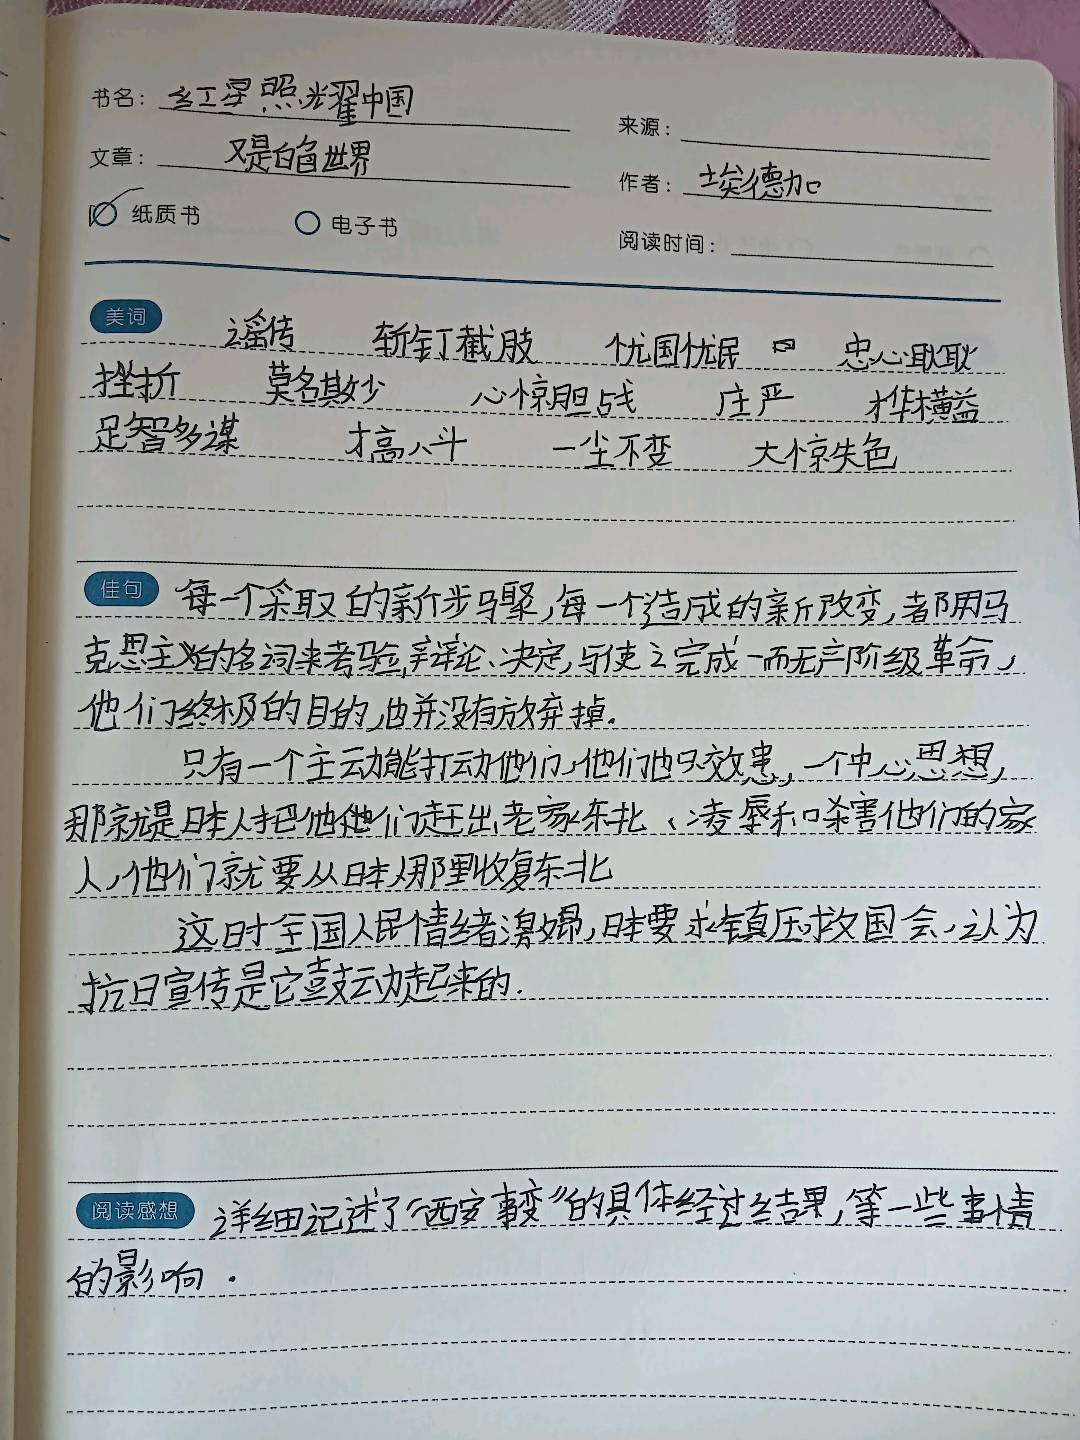 书名： 红星照耀中国
来源：
文章： 又是白色世界
作者： 埃德加
纸质书 电子书
阅读时间：
美词 谣传 斩钉截肢 忧国忧民 忠心耿耿
挫折 莫名其妙 心惊胆战 庄严 才华横益
足智多谋 才高八斗 一尘不变 大惊失色
佳句 每一个采取的新步骤,每一个造成的新改变,都用马
克思主义的名词来考验,辩论、决定,与使之完成一而无产阶级革命,
他们终极的目的,也并没有放弃掉.
只有一个主动能打动他们,他们也只效忠,一个中心思想,
那就是日本人把他他们赶出老家东北、凌辱和杀害他们的家
人,他们就要从日本人那里收复东北
这时全国人民情绪激昂,日本要求镇压救国会,认为
抗日宣传是它鼓动起来的.
阅读感想 详细记述了“西安事变”的具体经过结果,等一些事情
的影响.